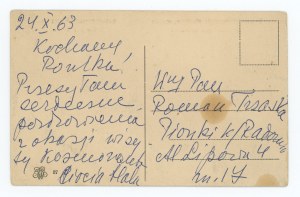 24.X.63
Kochany
Romku!
Przesyłam
serdeczne
pozdrowienia
z okazji wizy
ty Kosmonautów
Ciocia Hala
Wny Pan
Roman Trzaska
Pionki k/Radomia
Al Lipowa 4
m. 17